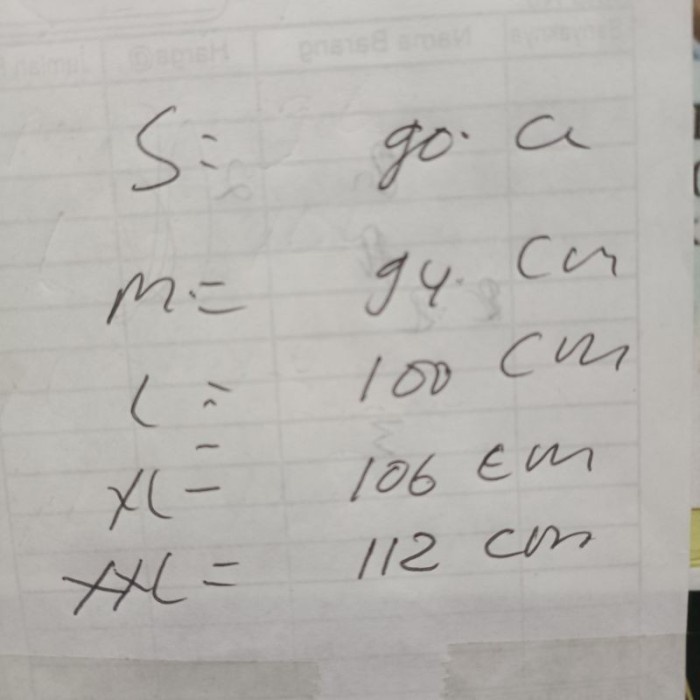 Banyaknya Nama Barang Harga@ Jumlah
S = 90. C
M. = 94. Cm
L = 100 Cm
XL = 106 cm
XXL = 112 cm